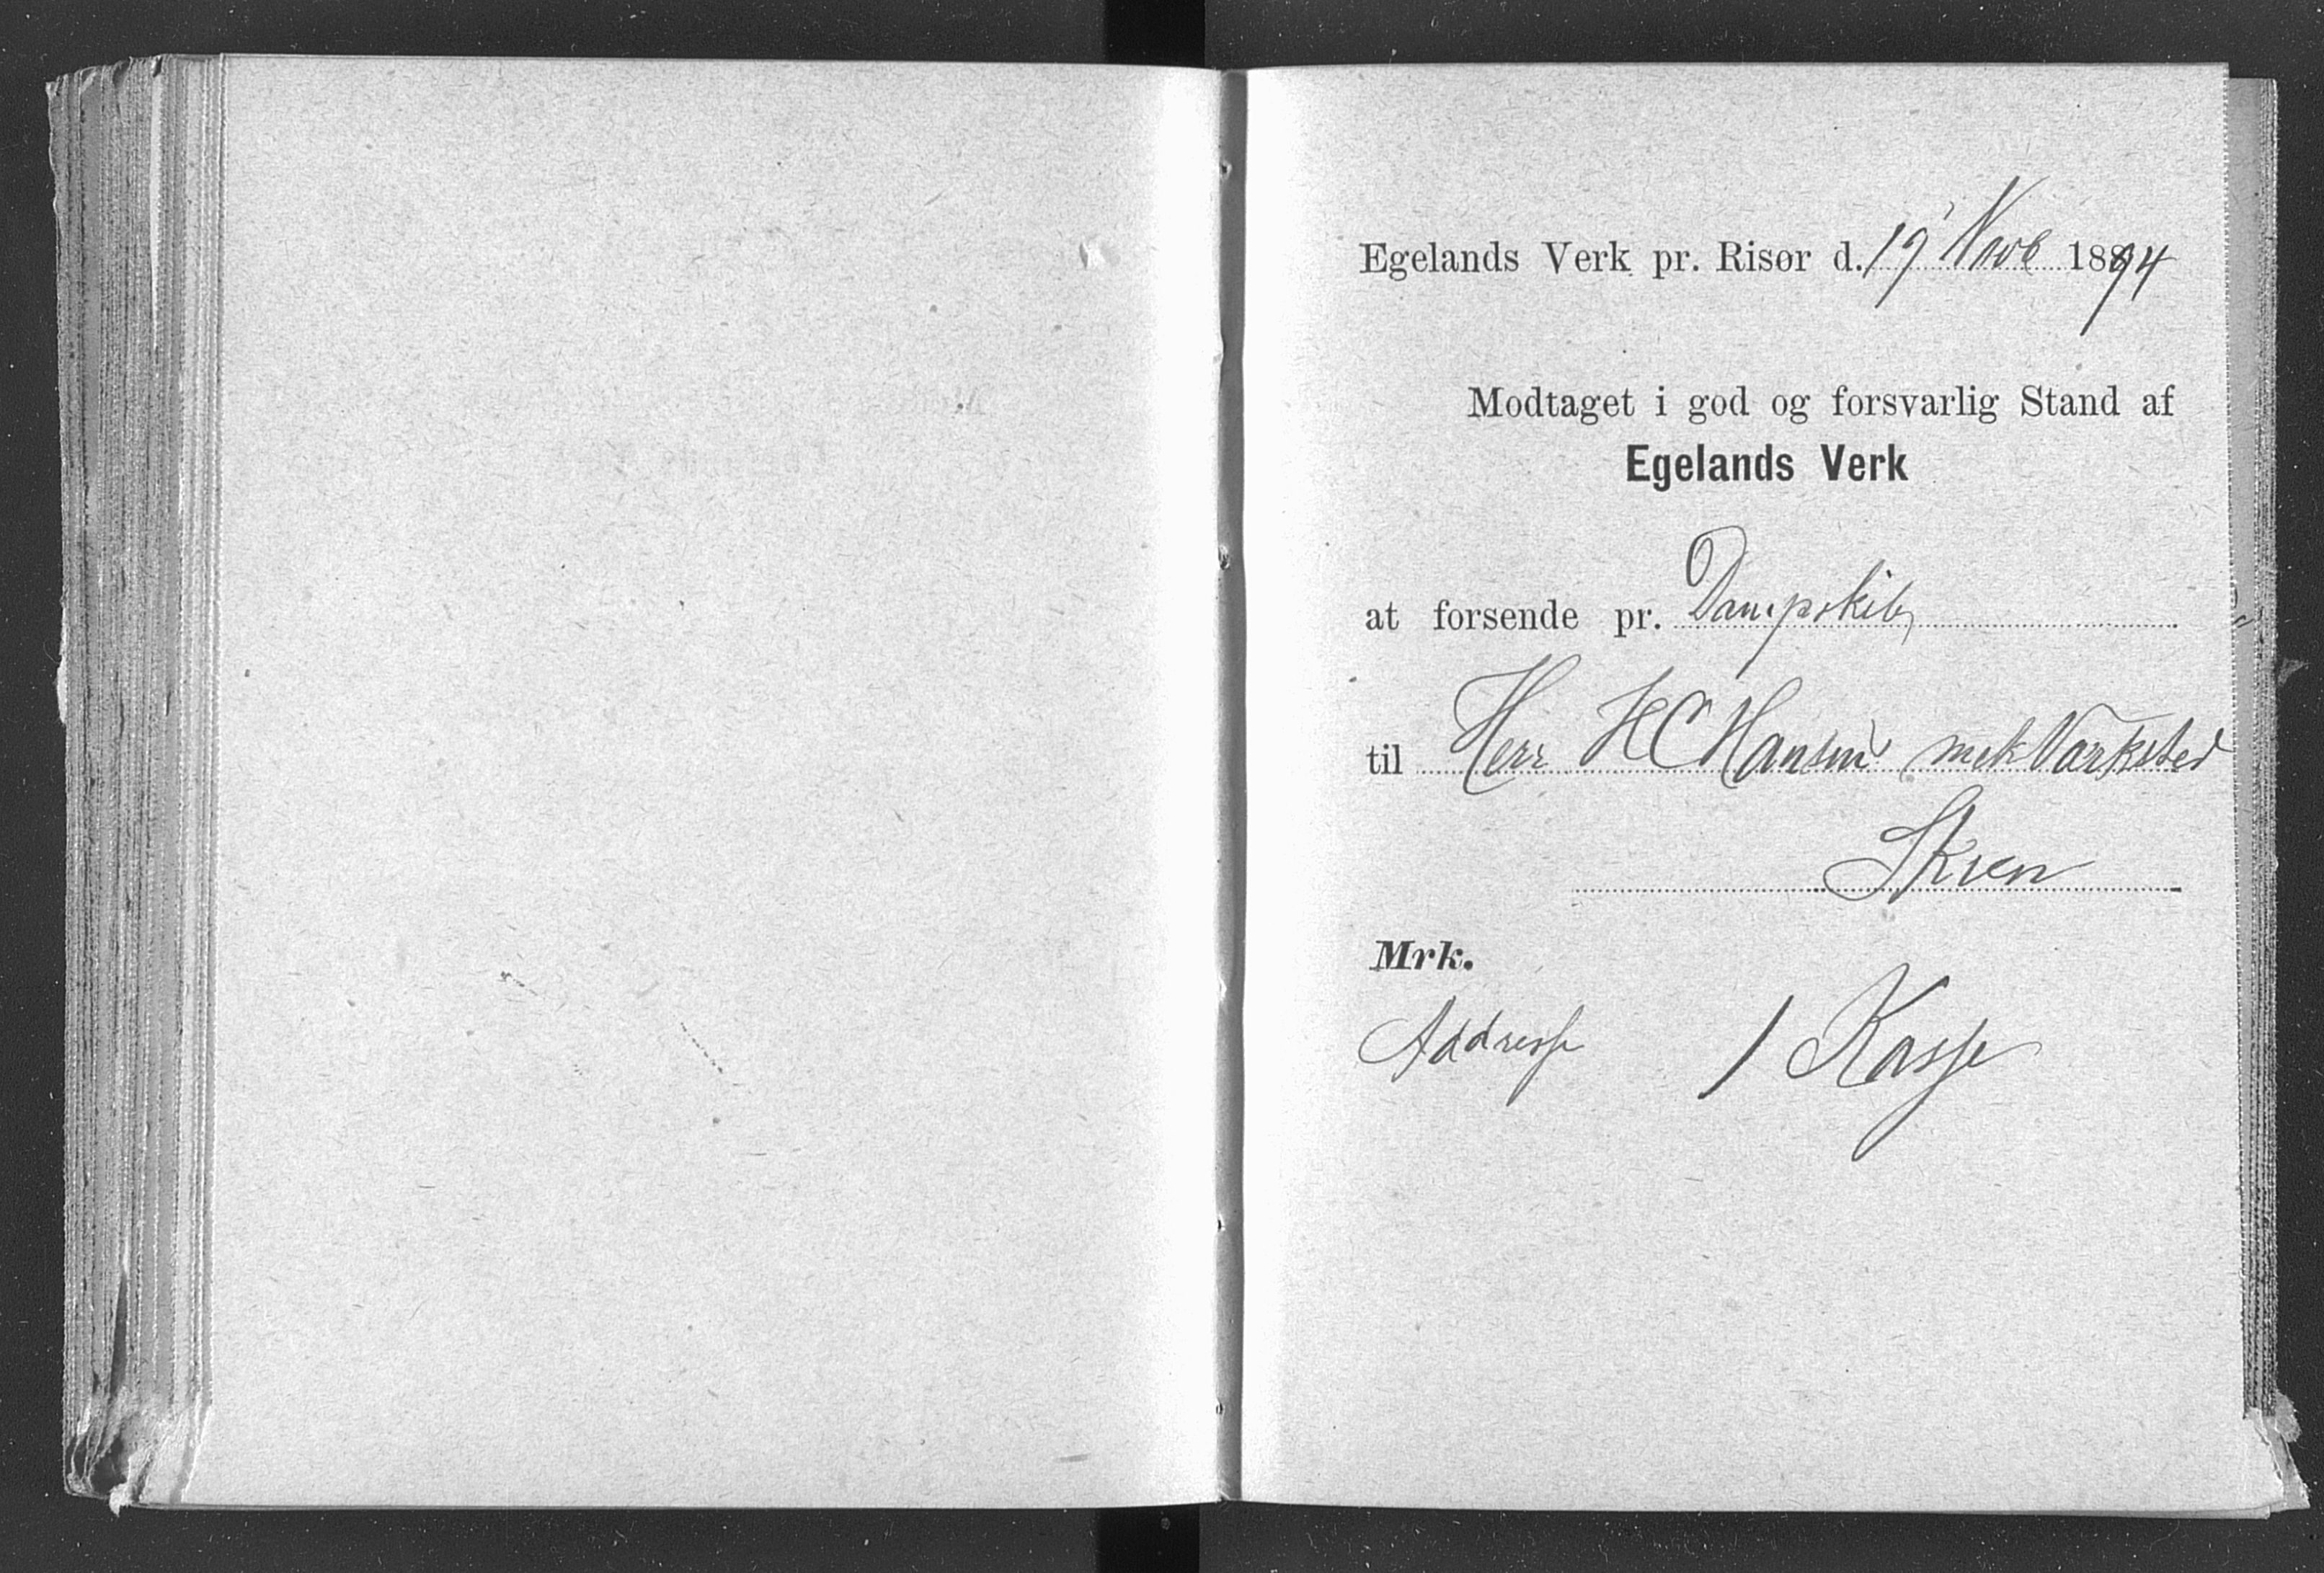 Egelands Verk pr. Risør d. 19 Novb 1894
Modtaget i god og forsvarlig Stand af
Egelands Verk
at forsende pr. Dampskib
til Herr H C Hansen mek Værksted
Skien
Mrk.
Addresse 1 Kasse